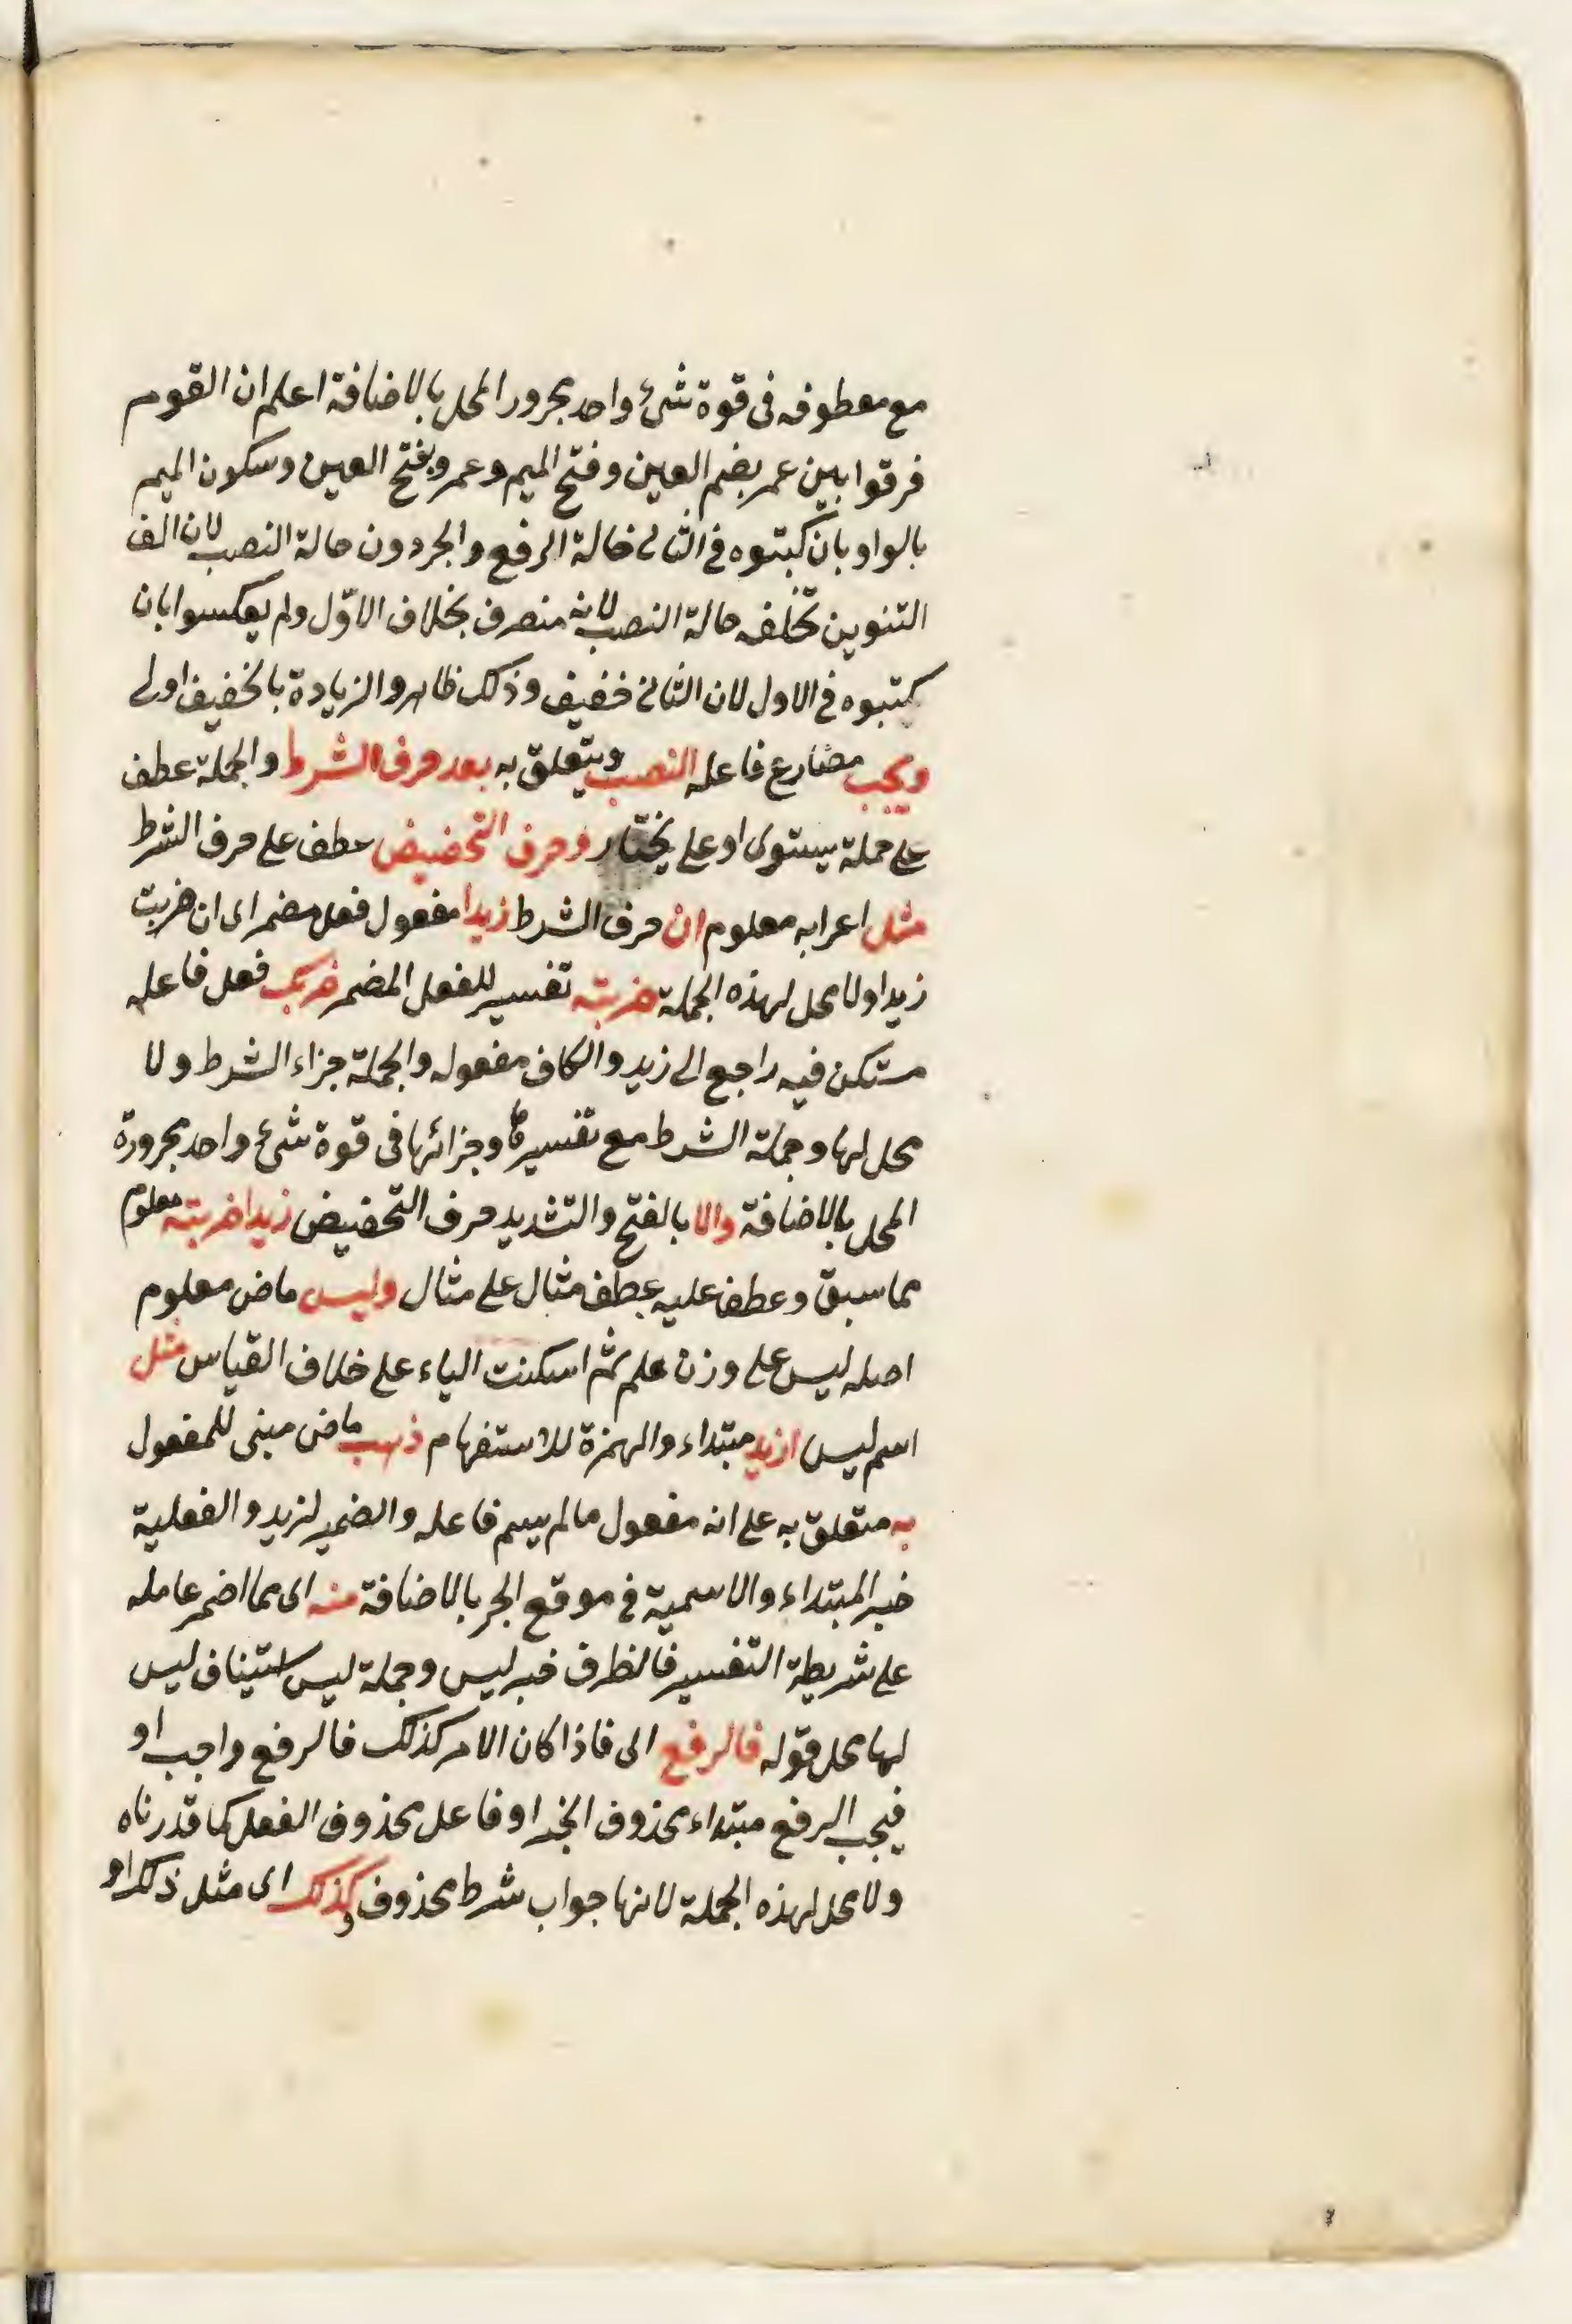 مع معطوفه فى قوة شئ واحد مجرور المحل بالاضافة اعلم ان القوم
فرقوا بين عمر بضم العين وفتح الميم وعمرو بفتح العين وسكون الميم
بالواو بان كبتوه فى الثانى حالة الرفع والجر دون حالة النصب لان الف
التنوين تخلفه حالة النصب لانه منصرف بخلاف الاوّل ولم يعكسوا بان
كتبوه فى الاول لان الثانى خفيف وذلك ظاهر والزيادة بالخفيف اولى
ويجب مضارع فاعله النصب ويتعلق به بعد حرف الشرط والجملة عطف
على جملة يستوى او على يختار وحرف التحضيض عطف على حرف الشرط
مثل اعرابه معلوم ان حرف الشرط زيدا مفعول فعل مضمر اى ان ضربت
زيدا ولا محل لهذه الجملة ضربته تفسير للفعل المضمر ضربك فعل فاعله
مستكن فيه راجع الى زيد والكاف مفعوله والجملة جزاء الشرط ولا
محل لها وجملة الشرط مع تفسيرها وجزائها فى قوة شئ واحد مجرورة
المحل بالاضافة والا بالفتح والتشديد حرف التحضيض زيدا ضربته معلوم
مما سبق وعطف عليه عطف مثال على مثال وليس ماض معلوم
اصله ليس على وزن علم ثم اسكنت الياء على خلاف القياس مثل
اسم ليس ازيد مبتداء والهمزة للاستفهام ذهب ماض مبنى للمفعول
به متعلق به على انه مفعول مالم يسم فاعله والضمير لزيد والفعلية
خبر المبتداء والاسمية فى موقع الجر بالاضافة منه اى مما اضمر عامله
على شريطة التفسير فالظرف خبر ليس وجملة ليس استيناف ليس
لها محل قوله فالرفع اى فاذا كان الامر كذلك فالرفع واجب او
فيجب الرفع مبتداء محذوف الخبر او فاعل محذوف الفعل كما قدرناه
ولا محل لهذه الجملة لانها جواب شرط محذوف وكذلك اى مثل ذلك او